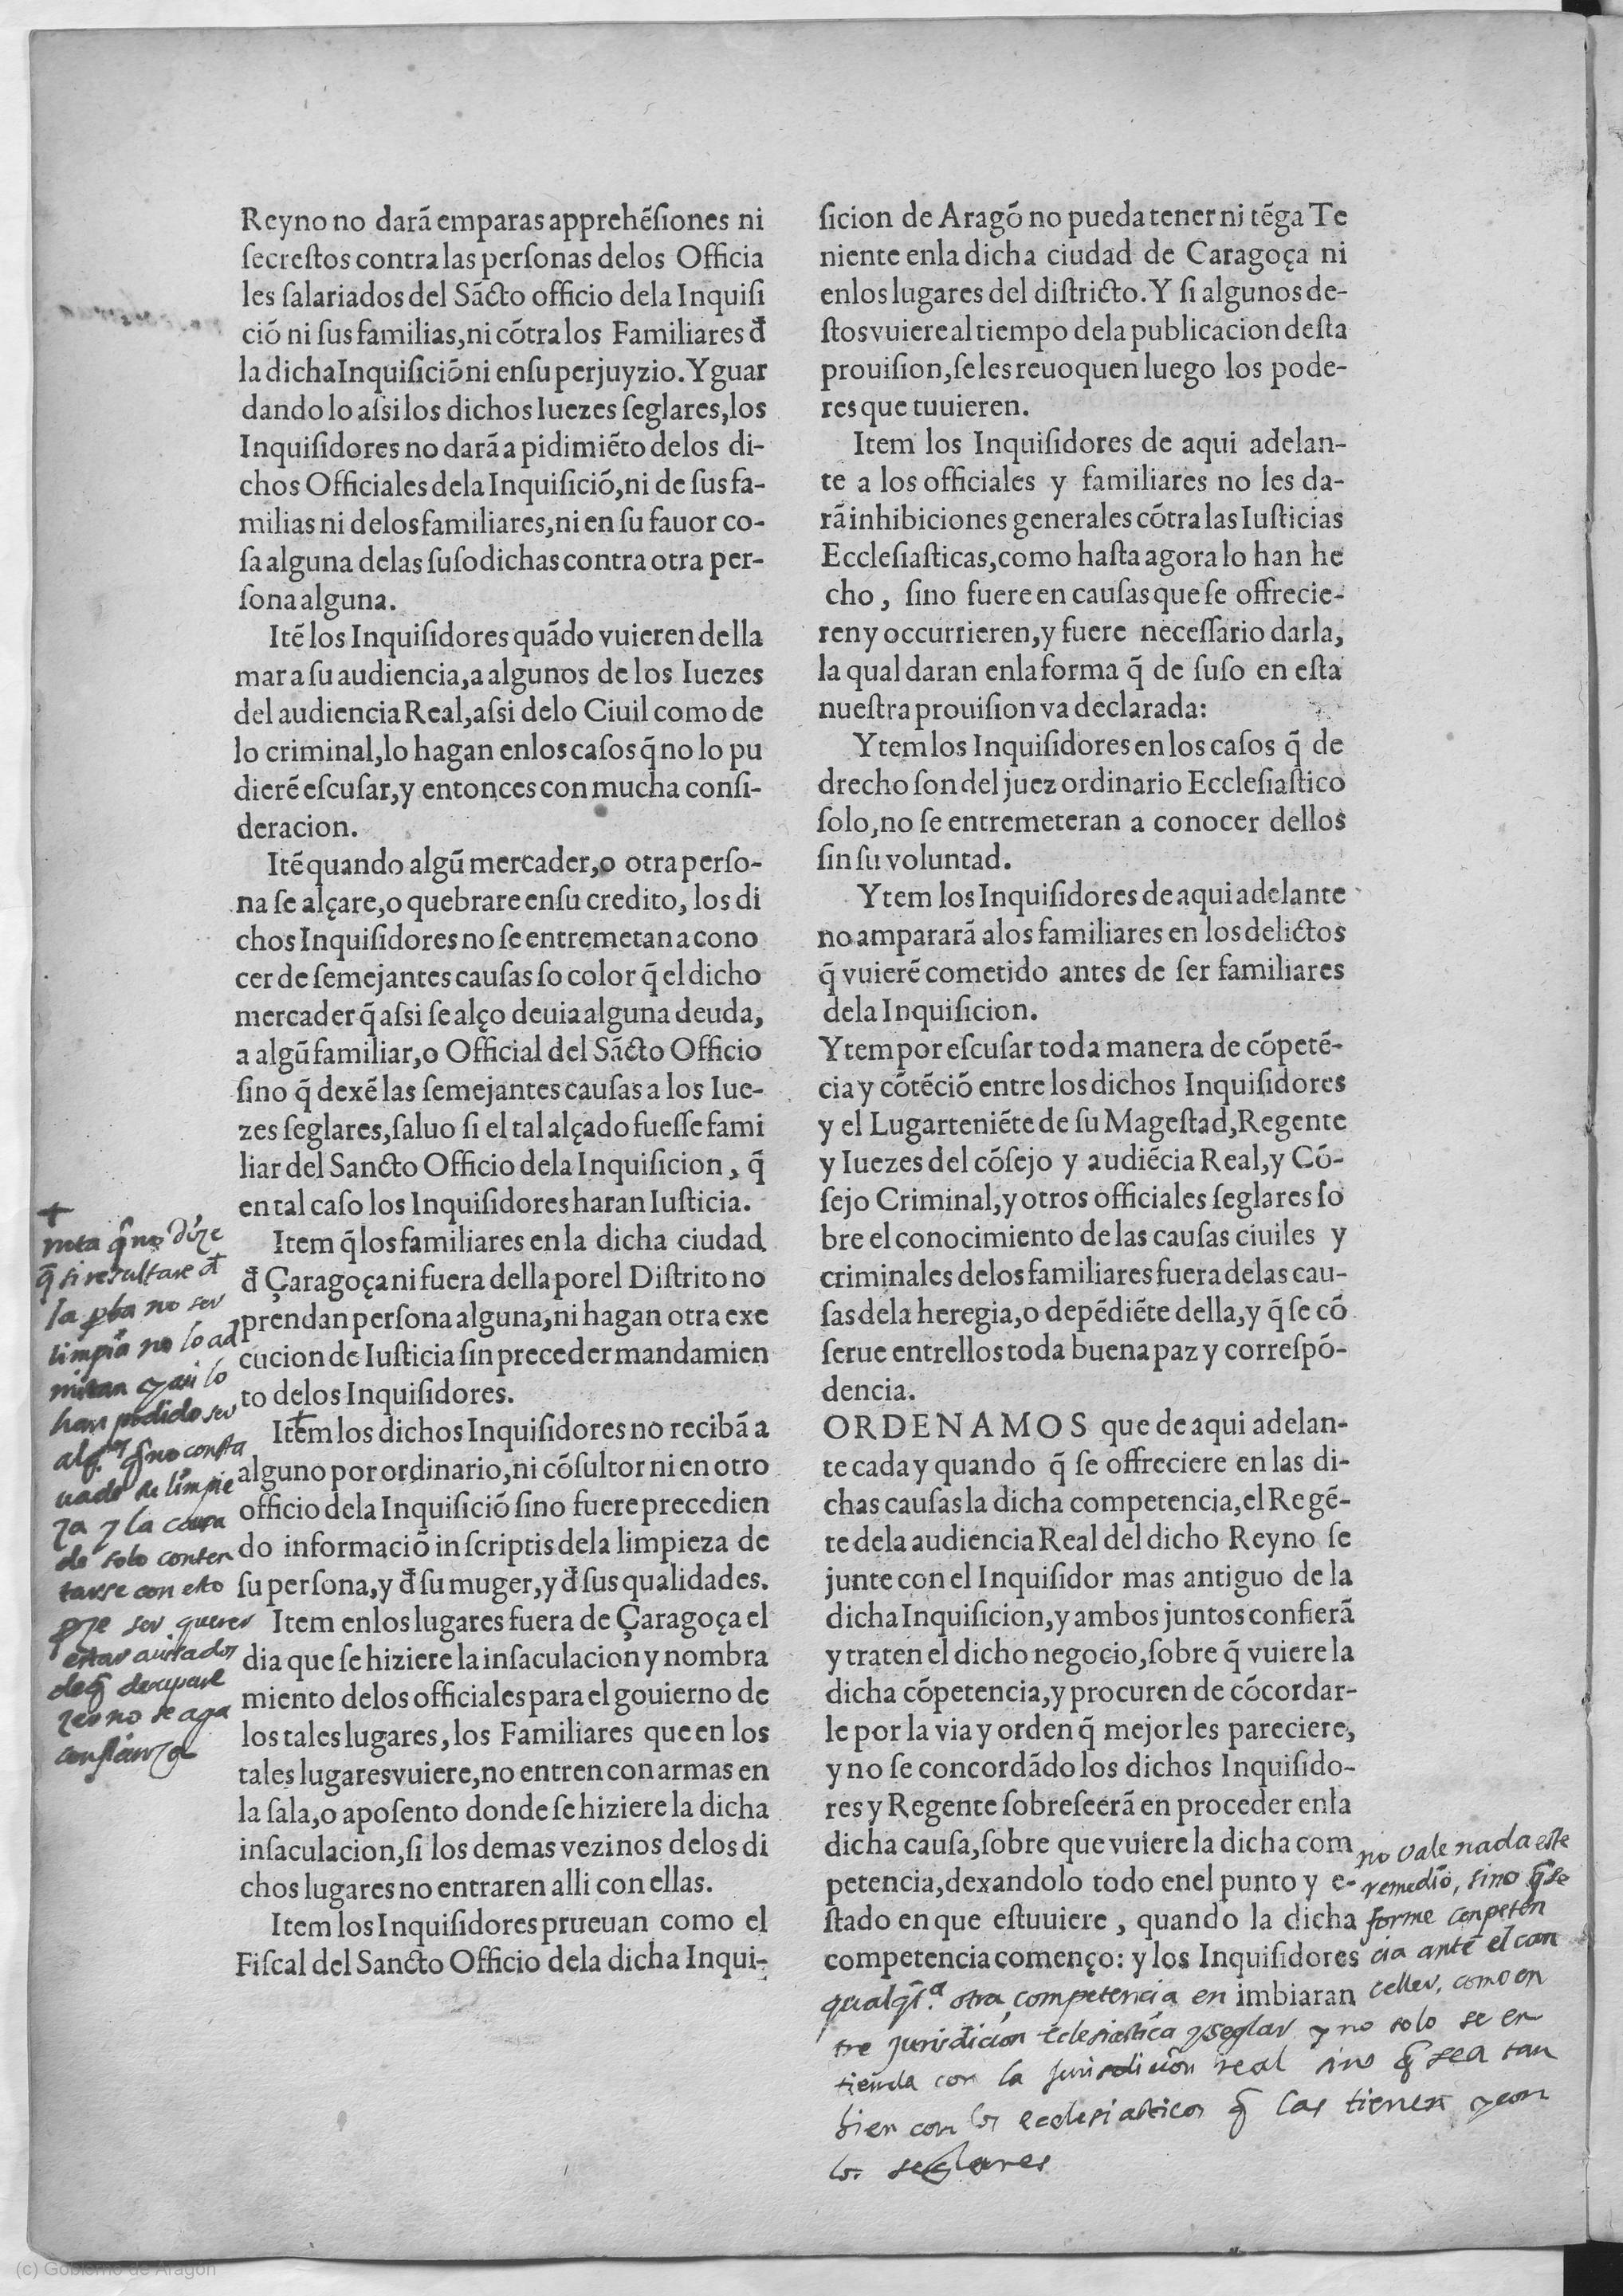 Reyno no darã emparas apprehẽſiones ni
ſecreſtos contra las perſonas delos Officia
les ſalariados del Sãcto officio dela Inquiſi
ciõ ni ſus familias, ni cõtra los Familiares đ
la dicha Inquiſiciõ ni enſu perjuyzio. Y guar
dando lo aſsi los dichos Iuezes ſeglares, los
Inquiſidores no darã a pidimiẽto delos di-
chos Officiales dela Inquiſiciõ, ni de ſus fa-
milias ni delos familiares, ni en ſu fauor co-
ſa alguna delas ſuſodichas contra otra per-
ſona alguna.
Itẽ los Inquiſidores quãdo vuieren de lla
mar a ſu audiencia, a algunos de los Iuezes
del audiencia Real, aſsi delo Ciuil como de
lo criminal, lo hagan enlos caſos q̃ no lo pu
dierẽ eſcuſar, y entonces con mucha conſi-
deracion.
Itẽ quando algũ mercader, o otra perſo-
na ſe alçare, o quebrare enſu credito, los di
chos Inquiſidores no ſe entremetan a cono
cer de ſemejantes cauſas ſo color q̃ el dicho
mercader q̃ aſsi ſe alço deuia alguna deuda,
a algũ familiar, o Official del Sãcto Officio
ſino q̃ dexẽ las ſemejantes cauſas a los Iue-
zes ſeglares, ſaluo ſi el tal alçado fueſſe fami
liar del Sancto Officio dela Inquiſicion, q̃
en tal caſo los Inquiſidores haran Iuſticia.
Item q̃ los familiares en la dicha ciudad
đ Çaragoça ni fuera della por el Diſtrito no
prendan perſona alguna, ni hagan otra exe
cucion de Iuſticia ſin preceder mandamien
to delos Inquiſidores.
Item los dichos Inquiſidores no recibã a
alguno por ordinario, ni cõſultor ni en otro
officio dela Inquiſiciõ ſino fuere precedien
do informaciõ in ſcriptis dela limpieza de
ſu perſona, y đ ſu muger, y đ ſus qualidades.
Item enlos lugares fuera de Çaragoça el
dia que ſe hiziere la inſaculacion y nombra
miento delos officiales para el gouierno de
los tales lugares, los Familiares que en los
tales lugares vuiere, no entren con armas en
la ſala, o apoſento donde ſe hiziere la dicha
inſaculacion, ſi los demas vezinos delos di
chos lugares no entraren alli con ellas.
Item los Inquiſidores prueuan como el
Fiſcal del Sancto Officio dela dicha Inqui-
nota q̃ no dize
q̃ si resultare đ
la pba no ser
limpia no lo ad
mitan y asi lo
han podido ser
q̃ no consta
uade de limpie
za y la causa
de solo conten
tarse con esto
ser querer
estar auisados
deq̃
no se aga
confianza
ſicion de Aragõ no pueda tener ni tẽga Te
niente enla dicha ciudad de Caragoça ni
enlos lugares del diſtricto. Y ſi algunos de-
ſtos vuiere al tiempo dela publicacion deſta
prouiſion, ſe les reuoquen luego los pode-
res que tuuieren.
Item los Inquiſidores de aqui adelan-
te a los officiales y familiares no les da-
rã inhibiciones generales cõtra las Iuſticias
Eccleſiaſticas, como haſta agora lo han he
cho, ſino fuere en cauſas que ſe offrecie-
ren y occurrieren, y fuere neceſſario darla,
la qual daran enla forma q̃ de ſuſo en eſta
nueſtra prouiſion va declarada:
Ytem los Inquiſidores en los caſos q̃ de
drecho ſon del juez ordinario Eccleſiaſtico
ſolo, no ſe entremeteran a conocer dellos
ſin ſu voluntad.
Ytem los Inquiſidores de aqui adelante
no ampararã alos familiares en los delictos
q̃ vuierẽ cometido antes de ſer familiares
dela Inquiſicion.
Ytem por eſcuſar toda manera de cõpetẽ-
cia y cõtẽciõ entre los dichos Inquiſidores
y el Lugarteniẽte de ſu Mageſtad, Regente
y Iuezes del cõſejo y audiẽcia Real, y Cõ-
ſejo Criminal, y otros officiales ſeglares ſo
bre el conocimiento de las cauſas ciuiles y
criminales delos familiares fuera delas cau-
ſas dela heregia, o depẽdiẽte della, y q̃ ſe cõ
ſerue entrellos toda buena paz y correſpõ-
dencia.
ORDENAMOS que de aqui adelan-
te cada y quando q̃ ſe offreciere en las di-
chas cauſas la dicha competencia, el Regẽ-
te dela audiencia Real del dicho Reyno ſe
junte con el Inquiſidor mas antiguo de la
dicha Inquiſicion, y ambos juntos confierã
y traten el dicho negocio, ſobre q̃ vuiere la
dicha cõpetencia, y procuren de cõcordar-
le por la via y orden q̃ mejor les pareciere,
y no ſe concordãdo los dichos Inquiſido-
res y Regente ſobreſeerã en proceder enla
dicha cauſa, ſobre que vuiere la dicha com
petencia, dexandolo todo enel punto y e-
ſtado en que eſtuuiere, quando la dicha
competencia començo: y los Inquiſidores
imbiaran
no vale nada este
remedio, sino q̃ se
forme conpeten
cia ante el can
celler, como en
qualq̃ra otra competencia en
tre jurisdicion eclesiastica y seglar y no solo se en
tienda con la jurisdicion real sino q̃ sea tan
bien con los ecclesiasticos q̃ las tienen y con
los seglares
(c) Gobierno de Aragón